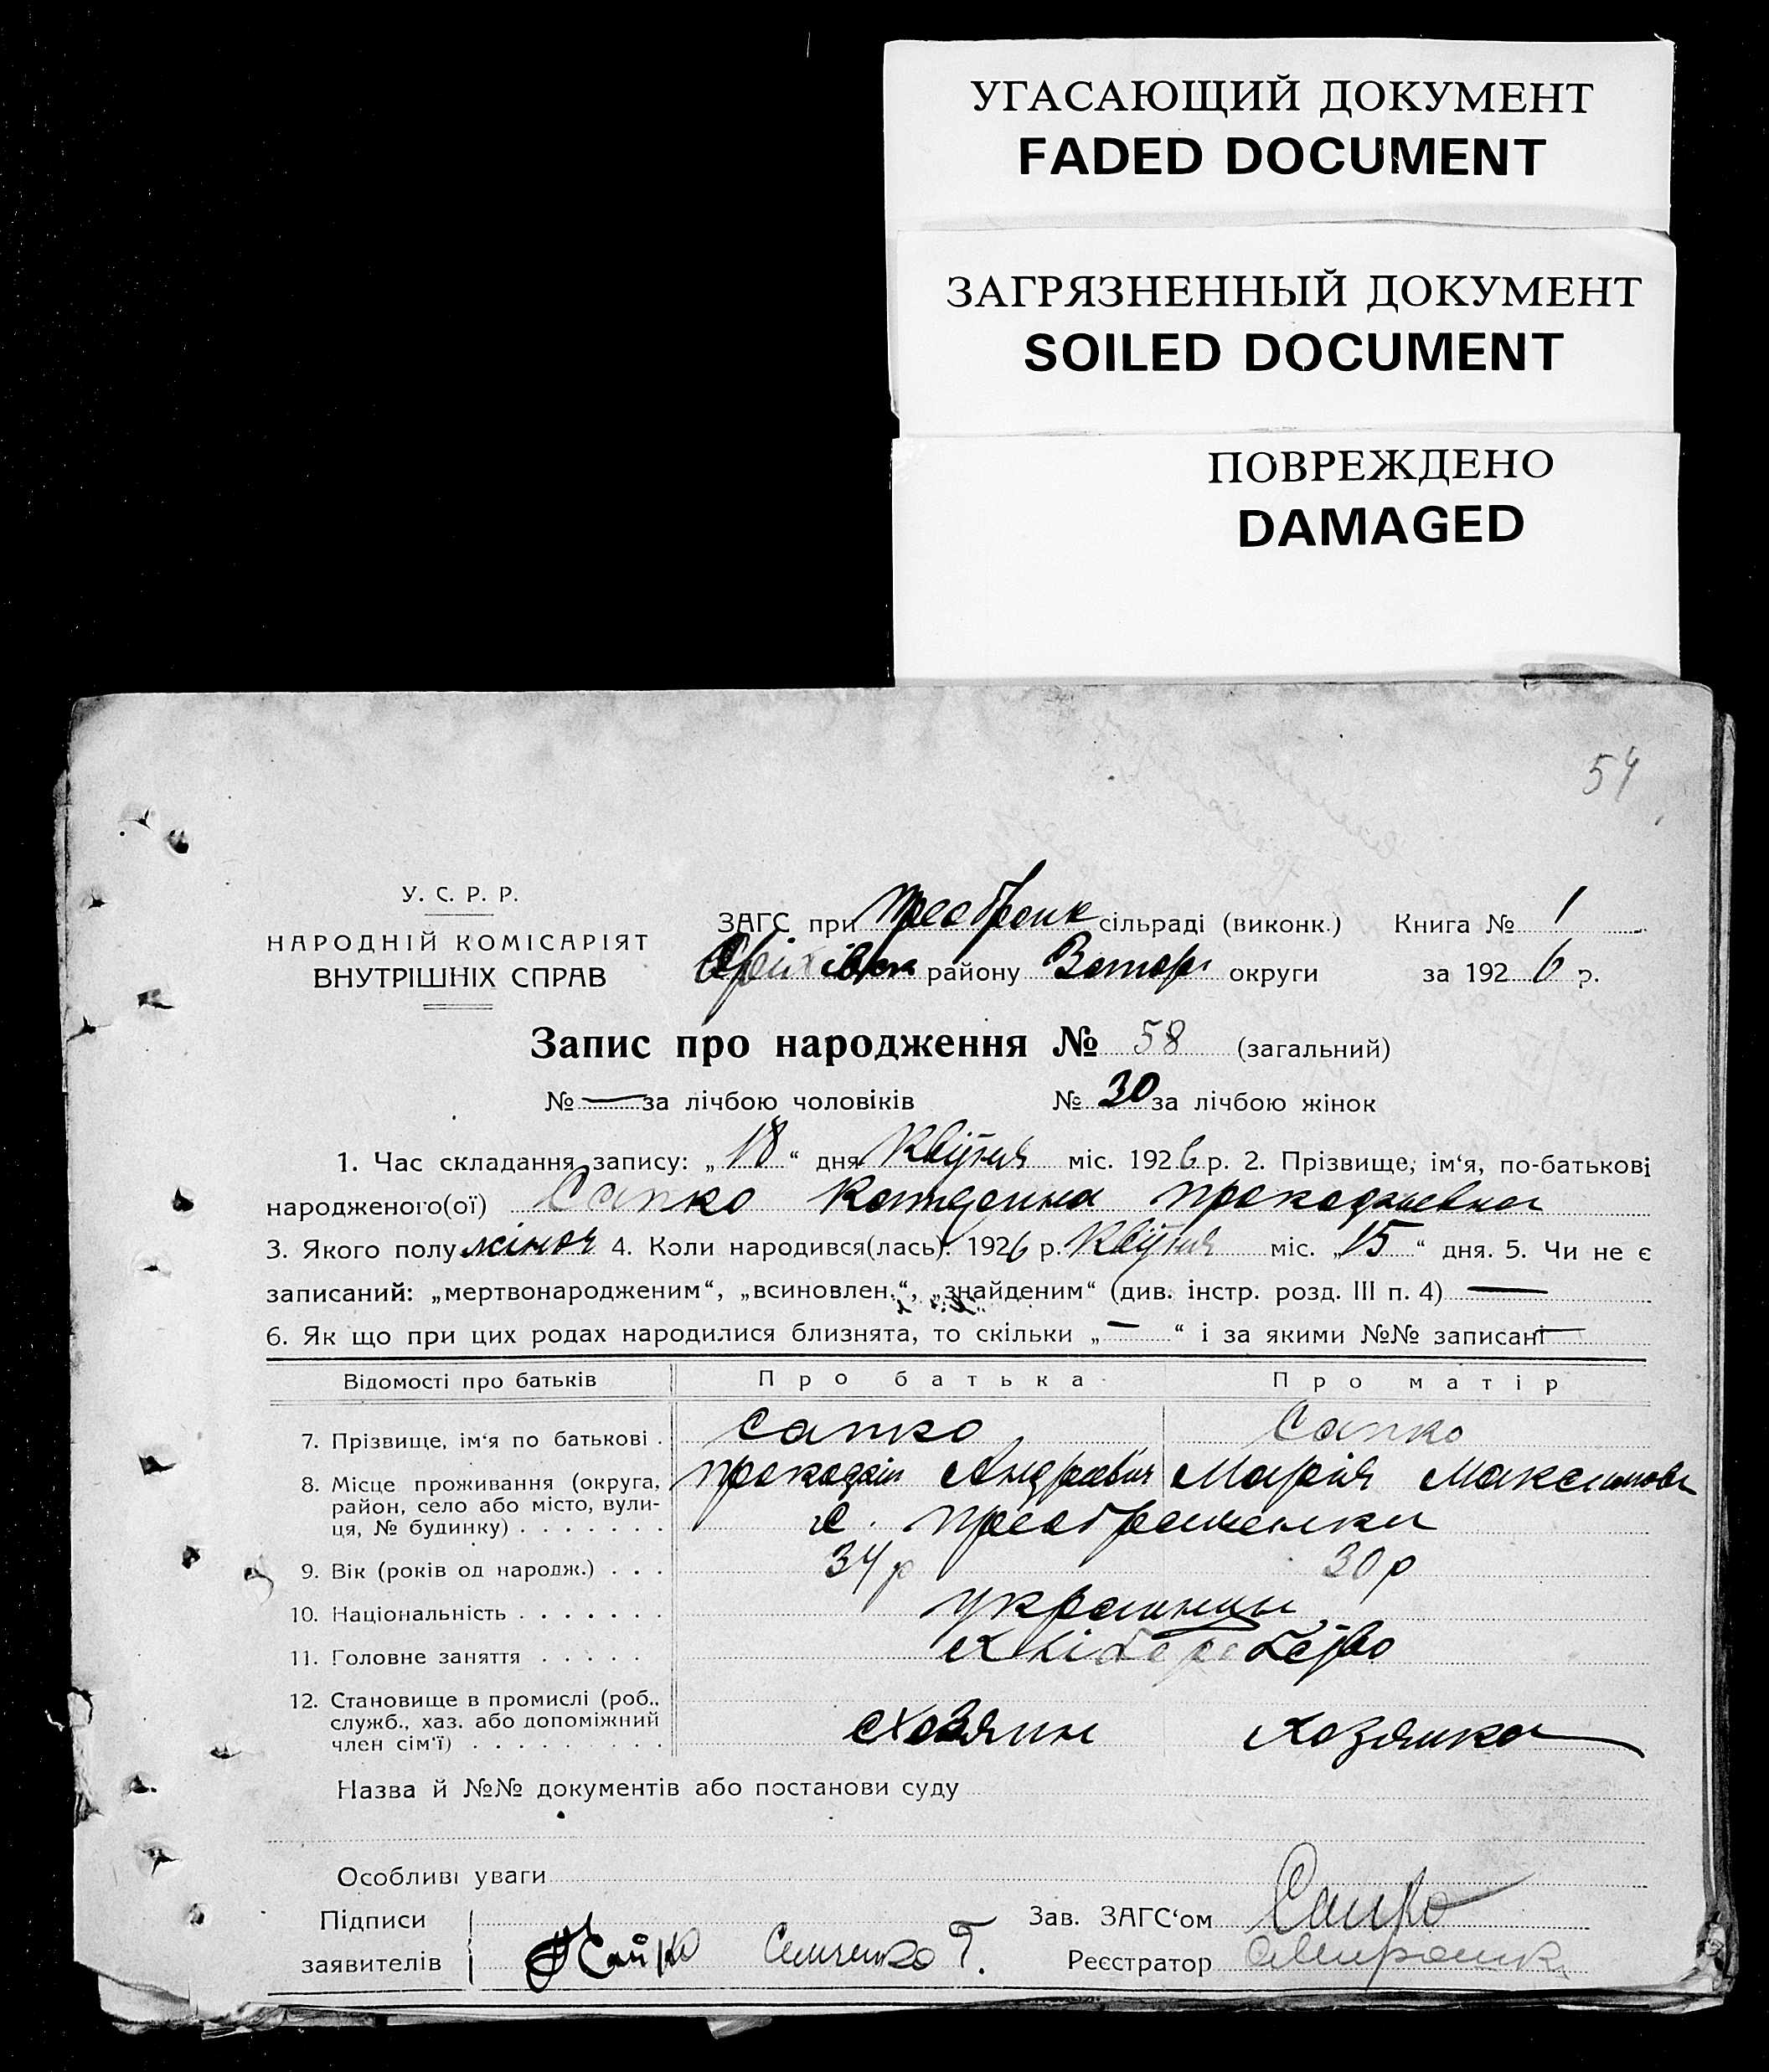 УГАСАЮЩИЙ ДОКУМЕНТ
FADED DOCUMENT
ЗАГРЯЗНЕННЫЙ ДОКУМЕНТ
SOILED DOCUMENT
ПОВРЕЖДЕНО
DAMAGED
54
У. С. Р. Р.
НАРОДНІЙ КОМІСАРІЯТ
ВНУТРІШНІХ СПРАВ
ЗАГС при сільраді (виконк.) Книга № 1
району округи за 1926 р.
Запис про народження № 58 (загальний)
№ — за лічбою чоловіків № 30 за лічбою жінок
1. Час складання запису: „18“ дня Квітня міс. 1926 р. 2. Прізвище, ім‘я, по-батькові
народженого(ої) Сапко Катерина
3. Якого полу жіноч 4. Коли народився(лась): 1926 р. Квітня міс. „15“ дня. 5. Чи не є
записаний: „мертвонародженим“, „всиновлен.“, „знайденим“ (див. інстр. розд. III п. 4) —
6. Як що при цих родах народилися близнята, то скільки „—“ і за якими №№ записані —
Відомості про батьків Про батька Про матір
7. Прізвище, ім‘я по батькові . Сапко Сапко
8. Місце проживання (округа, Марія
район, село або місто, вули-
ця, № будинку) . . . . . . . с.
9. Вік (років од народж.) . . . 34 р 30 р
10. Національність . . . . . . . українци
11. Головне заняття . . . . .
12. Становище в промислі (роб.,
служб., хаз. або допоміжний
член сім‘ї) . . . . . . . . . хозяин хозяика
Назва й №№ документів або постанови суду
Особливі уваги
Підписи Зав. ЗАГС‘ом Сапко
заявителів Семченко Т. Реєстратор